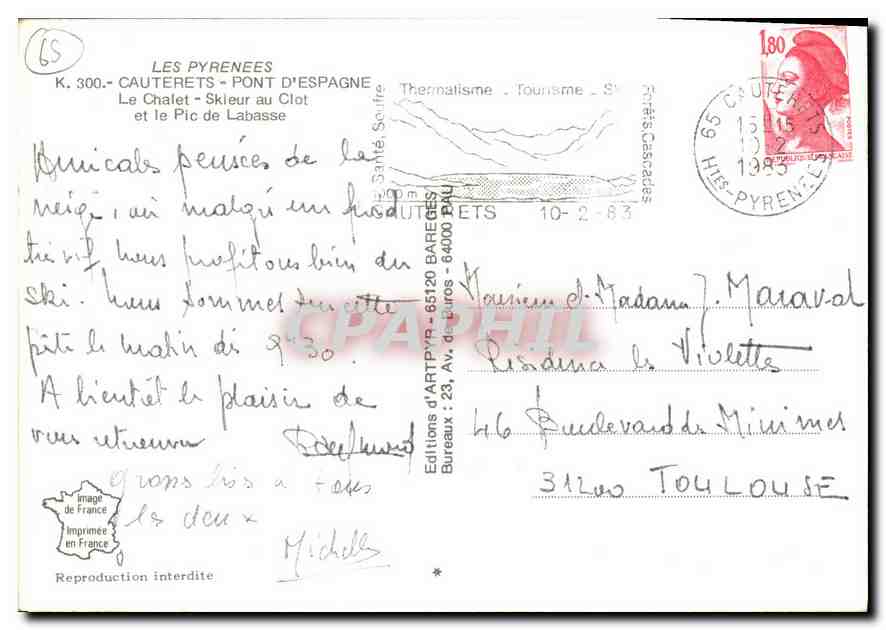 65
LES PYRENEES
K. 300.- CAUTERETS - PONT D'ESPAGNE
Le Chalet - Skieur au Clot
et le Pic de Labasse
Amicales pensées de la
neige, où malgré un froid
très vif, nous profitons bien du
ski. Nous sommes sur cette
piste le matin dès 9h30.
A bientôt le plaisir de
vous retrouver
gros bis a tous
les deux
Michelle
Image
de France
Imprimée
en France
Reproduction interdite
Editions d'ARTPYR - 65120 BAREGES
Bureaux : 23, Av. de Buros - 64000 PAU
*
Thermalisme . Tourisme . Ski
Santé, Soufre
Forêts, Cascades
CAUTERETS 10-2-83
65 CAUTERETS
15H15
10-2
1983
HTES-PYRENEES
1,80
POSTES
REPUBLIQUE FRANCAISE
Monsieur et Madame J. Maraval
Résidence les Violettes
46 Boulevard des Minimes
31200 TOULOUSE
CPAPHIL